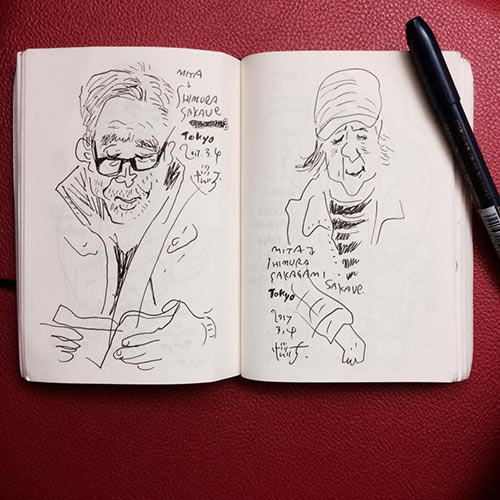 MITA
↓
SHIMURA
SAKAUE
Tokyo
2017.3.4
MITA
SHIMURA
SAKAGAMI
SAKAUE
Tokyo
2017
3.4